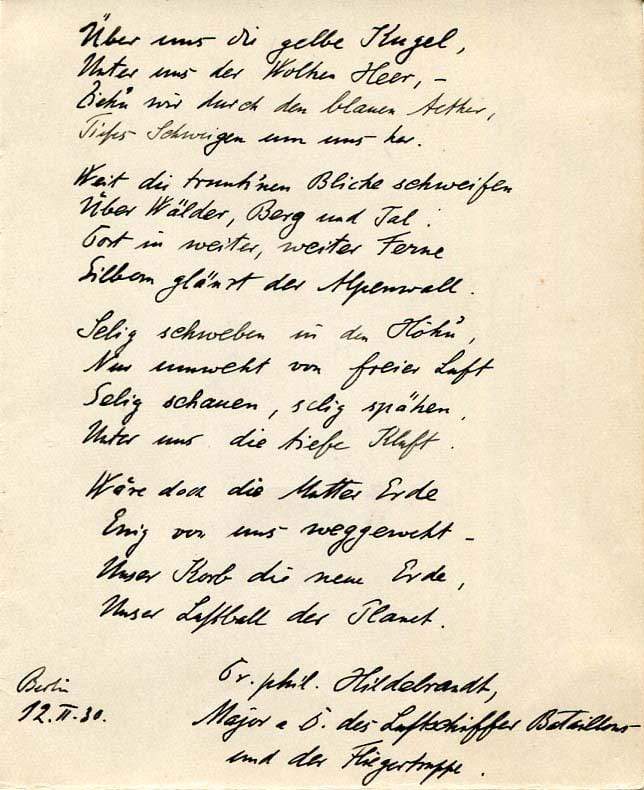 Über uns die gelbe Kugel,
Unter uns der Wolken Heer, –
Ziehn wir durch den blauen Aether,
Tiefes Schweigen um uns her.
Weit die trunk'nen Blicke schweifen
Über Wälder, Berg und Tal.
Dort in weiter, weiter Ferne
Silbern glänzt der Alpenwall.
Selig schweben in den Höh'n,
Nur umweht von freier Luft
Selig schauen, selig spähen,
Unter uns die tiefe Kluft.
Wäre doch die Mutter Erde
Ewig von uns weggeweht –
Unser Korb die neue Erde,
Unser Luftball der Planet.
Dr. phil. Hildebrandt,
Berlin
12.II.30.
Major a D. des Luftschiffer Bataillons
und der Fliegertruppe.